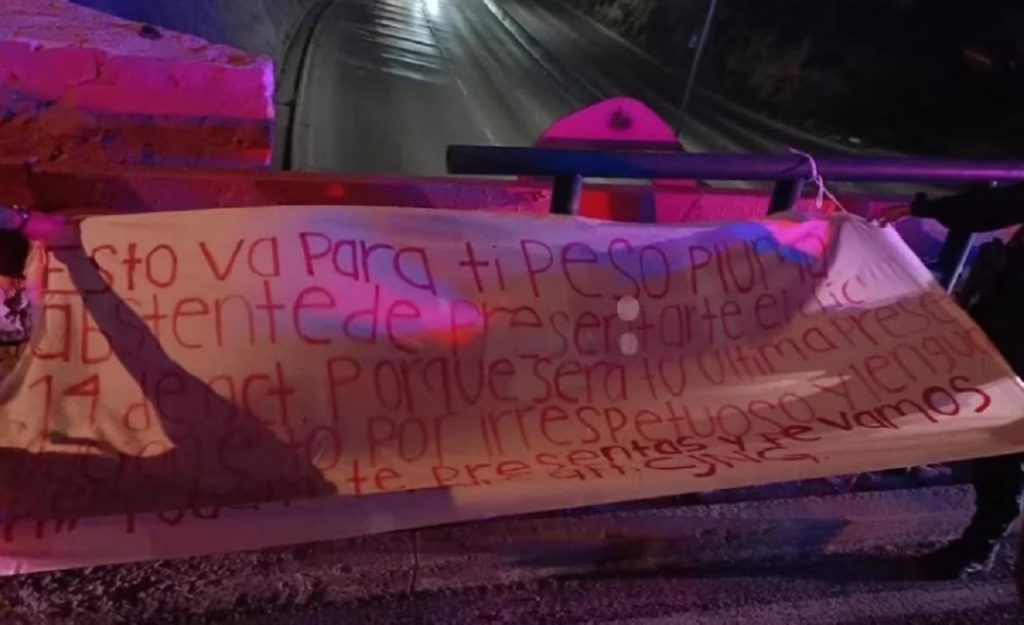 Esto va Para ti Peso Pluma
abstente de presentarte el dic
14 de oct. Porque sera tu ultima Prese
Por irrespetuoso y lengu
te Presentas y te vamos
CJNG.